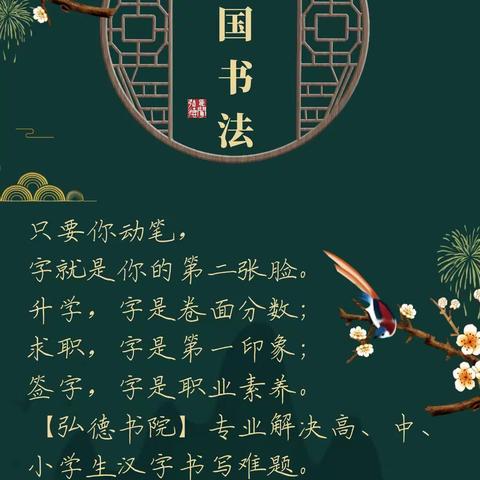 国书法
只要你动笔，
字就是你的第二张脸。
升学，字是卷面分数；
求职，字是第一印象；
签字，字是职业素养。
【弘德书院】专业解决高、中、
小学生汉字书写难题。